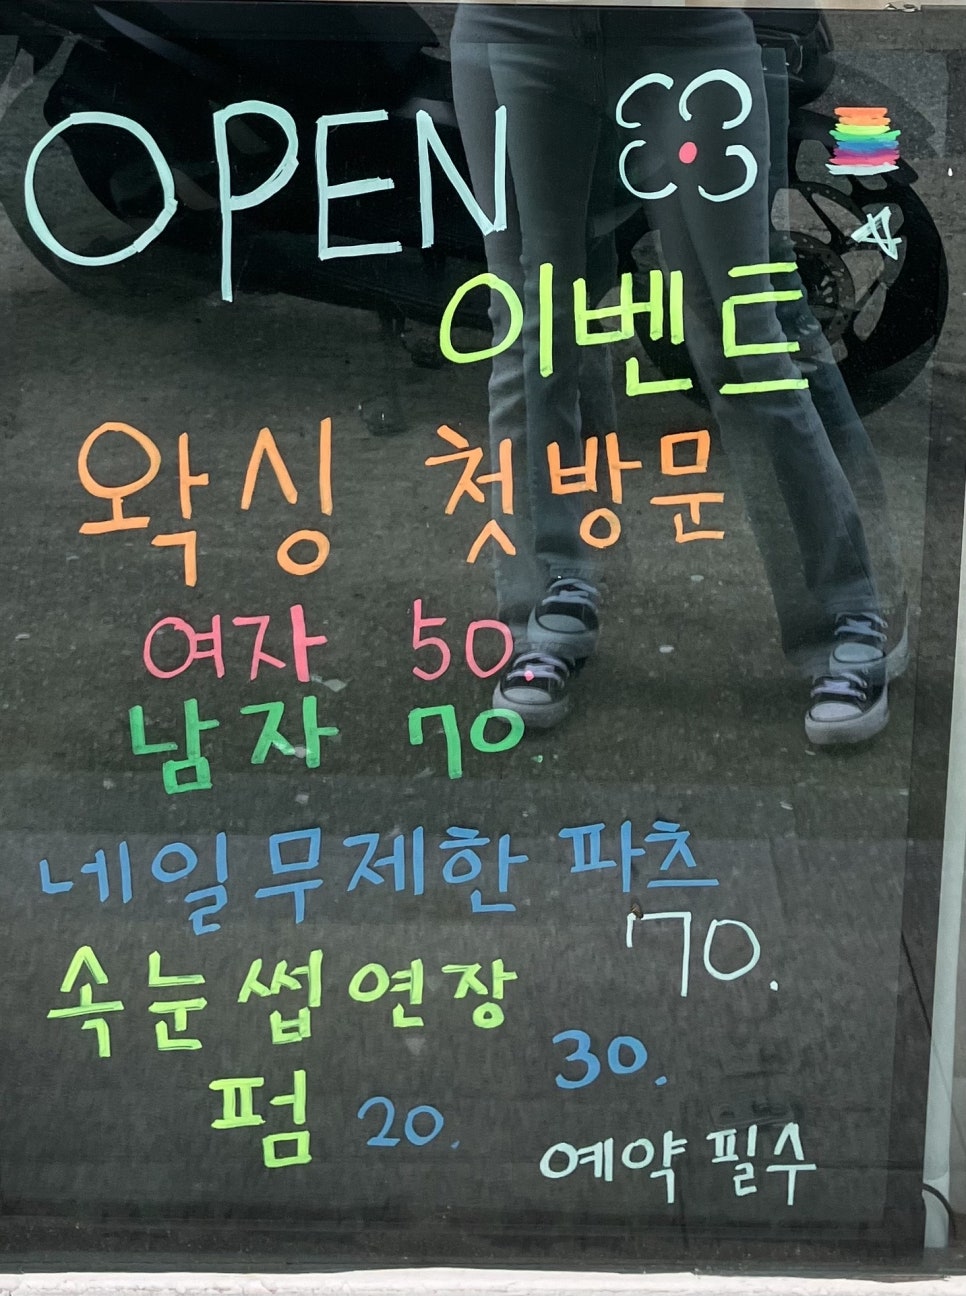 OPEN
이벤트
왁싱 첫방문
여자 50.
남자 70.
네일무제한 파츠
70.
속눈썹연장
30.
펌 20.
예약 필수